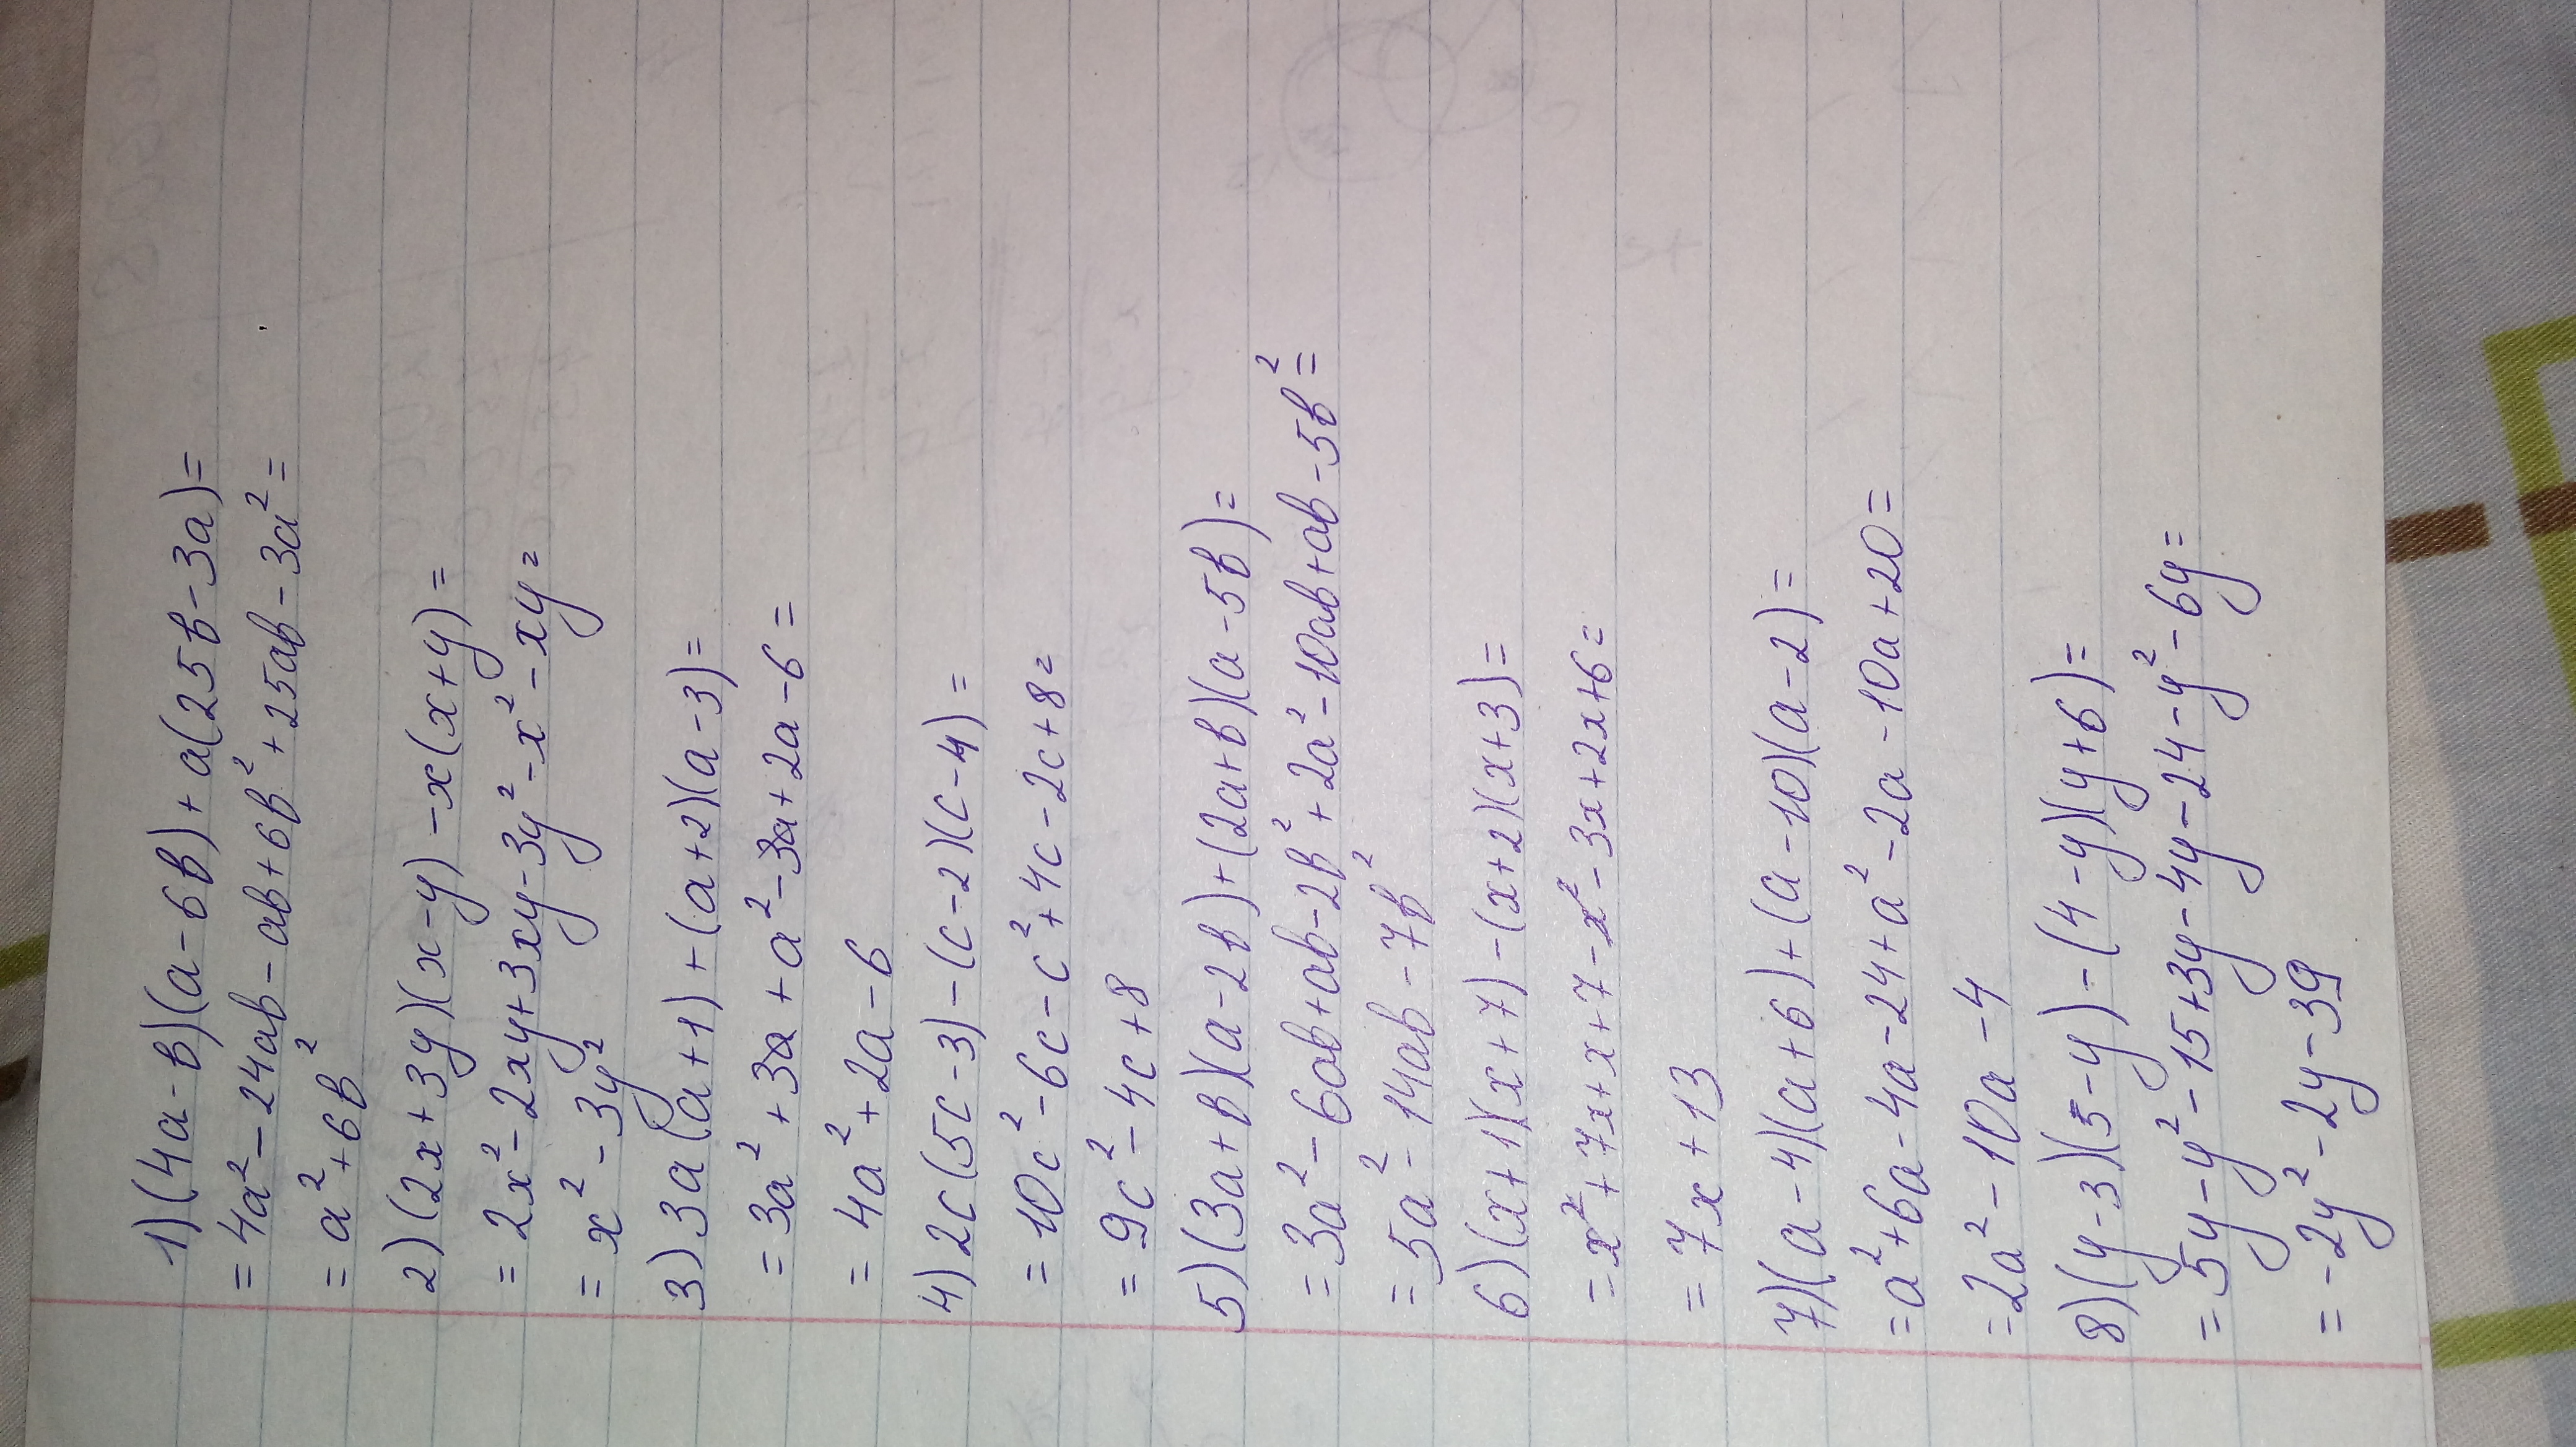 1) (4a-в)(a-6в)+a(25в-3a)=
=4a²-24aв-aв+6в²+25aв-3a²=
=a²+6в²
2) (2x+3y)(x-y)-x(x+y)=
=2x²-2xy+3xy-3y²-x²-xy=
=x²-3y²
3) 3a(a+1)+(a+2)(a-3)=
=3a²+3a+a²-3a+2a-6=
=4a²+2a-6
4) 2c(5c-3)-(c-2)(c-4)=
=10c²-6c-c²+4c-2c+8=
=9c²-4c+8
5) (3a+в)(a-2в)+(2a+в)(a-5в)=
=3a²-6aв+aв-2в²+2a²-10aв+aв-5в²=
=5a²-14aв-7в²
6) (x+1)(x+7)-(x+2)(x+3)=
=x²+7x+x+7-x²-3x+2x+6=
=7x+13
7) (a-4)(a+6)+(a-10)(a-2)=
=a²+6a-4a-24+a²-2a-10a+20=
=2a²-10a-4
8) (y-3)(5-y)-(4-y)(y+6)=
=5y-y²-15+3y-4y-24-y²-6y=
=-2y²-2y-39